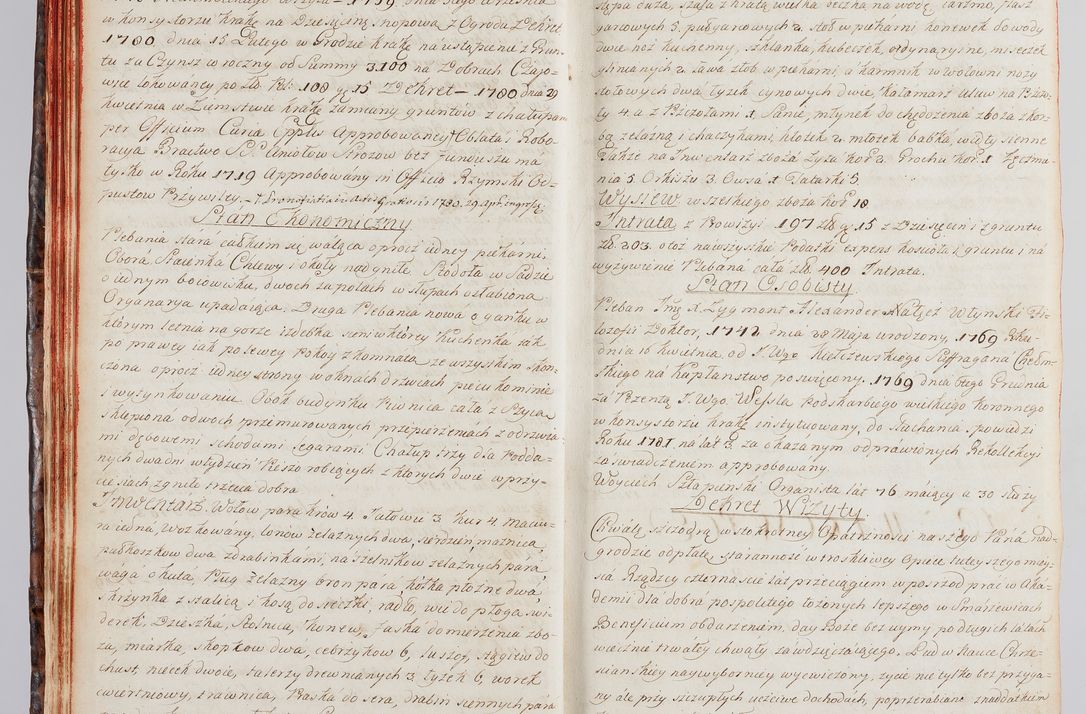 w konsystorzu Krako na Dziesięcinę snopową z Ogroda Dekret
1780 dnia 15 Lutego w Grodzie Krako na ustąpienie z Grun-
tu za Czynsz wroczny od Summy 3.100 na Dobrach Czajo-
wice lokowaney po Zł. Pol: 108 g 15 Dekret — 1780 dnia 29
kwietnia w Ziemstwie Krako zamiany gruntów z chałupami
per Officium Curiæ Eppłis Approbowaney Oblata i Robo-
racya Bractwo SS. Aniołow Strozow bez funduszu ma
tylko w Roku 1719 Approbowany in Officio Rzymski Od-
pustow Przywiley.
Stan Ekonomiczny
Plebania stára całkiem się waląca oprocz iedney piekárni,
Oborá Staienka Chlewy i okoły nadgniłe Stodoła w Sadzie
o iednym boiowisku, dwoch zapolach w słupach osłabiona
Organarya upadaiąca. Druga Plebania nowa o ganku w
którym letnia na gorze izdebka sieni w ktorey Kuchenka iak
po prawey iak po lewey Pokóy z komnatą ze wszystkim skon-
czona oprocz iedney strony w oknach drzwiach piecu kominie
i wytynkowaniu. Obok budynku Piwnica cała z Szyca
sklepioná o dwoch przemurowanych przepierzeniach z odrzwia-
mi dębowemi schodami legarami Chałup trzy dla Podda-
nych dwa dni w tydzień Pieszo robiących z ktorych dwie w przy-
ciesiach zgniłe trzecia dobra
Inwentarz. Wołow para krów 4. Jałowic 3 kur 4. Maciu-
ra iedna, woz kowány, łonow żelaznych dwa, sierdzień, maznica,
pułkoszkow dwa z drabinkámi, naszelnikow żelaznych pará
wagá okutá, Pług żelazny bron para, kołka płożne dwá,
skrzynka z stalicą i kosą do sieczki, rádło, wić do płoga swi-
derek, Dzieszka, Stolnica, konew, faská do mierzenia zbo-
za, miarka, skopkow dwa, cebrzykow 6, łuszof, stągiew do
chust, niecek dwoie, talerzy drewnianych 3 łyżek 6, worek
cwiertniowy, trawnica, Praska do sera, drabin siennych pára
stępa duza, szafa z kratą wielka beczka na wodę, Jarzmo, flasz
garcowych 5. pułgarcowych 2. stoł w piekárni, konewek do wody
dwie noż kuchenny, szklanka, kubeczek, ordynaryine, miseczek
glinianych 2. ława złob w piekárni, a karmnik w wołowni noży
stołowych dwa łyżek cynowych dwie, kałamarz Ulow na Pszczo-
ły 4. a z Pszczołami 1. Sanie, młynek do chędozenia zboża z kor-
bą zelazną i chaczykami, kłotek 2. młotek babka, widły sienne
Także na Inwentarz zboża Zyta kor 3. Grochu kor. 1 Jęczmie-
nia 5. Orkiszu 3. Owsa 1 Tatarki 5.
Wysiew wszelkiego zboża kor 18
Intrata z Prowizyi 197 zł. g. 15 z Dziesięcin i z gruntu
zł. 203. otoż na wszystkie Podatki expens kosciołá i gruntu i na
wyżywienie Plebaná całá zł. 400 Intrata.
Stan Osobisty.
Pleban Jmę X. Zygmont Alexander Nałęcz Utynski Fi-
lozofii Doktor, 1742 dnia 28 Maja urodzony, 1769 Roku
dnia 16 kwietnia, od J. Wgo Kiełczewskiego Suffragana Chełm-
skiego ná Kapłanstwo poswięcony. 1769 dnia 6tego Grudnia
zá Prezentą J. Wgo. Wessla Podskarbiego wielkiego Koronnego
w konsystorzu Krako instytuowany, do słuchania spowiedzi
Roku 1781 na lat 3. za okazanym odprawionych Rekollekcyi
zaswiadczeniem approbowany.
Woyciech Szłapienski Organista lat 76 máiący a 30 służy
Dekret Wizyty.
Chwalę szczodrą w stokrotney Opatrzności naszego Páná Nad-
grodzie odpłatę, staránność w troskliwey Opiece tuteyszego miey-
sca Rządzcy czternascie lat przeciągiem w posrzod prac w Aka-
demii dlá dobrá pospolitego łożonych lepszego w Smarzewicach
Beneficium obdarzeniem, day Boże bez uymy po długich látach
wiecznie trwałey chwały zawdzięczaiącego. Lud w Nauce Chrze-
scianskiey naywyborniey wycwiczony, życie nie tylko bez przyga-
ny ale przy szczupłych uczciwe dochodach, poprzerabiane znaddatkiem